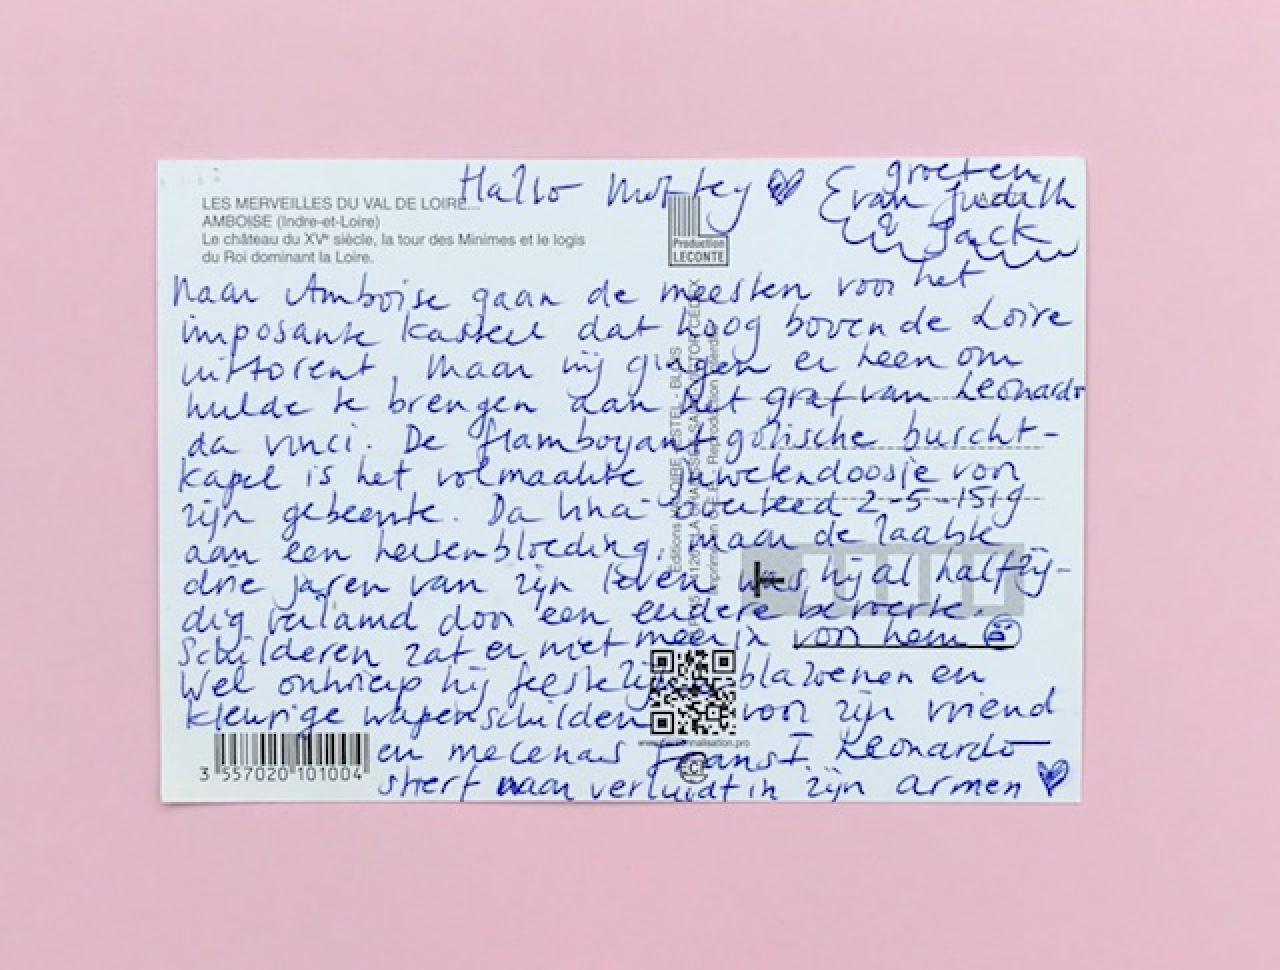 Hallo Mottey
groeten
van Judith
& Jack
LES MERVEILLES DU VAL DE LOIRE...
AMBOISE (Indre-et-Loire)
Le château du XVe siècle, la tour des Minimes et le logis
du Roi dominant la Loire.
Production
LECONTE
Naar Amboise gaan de meesten voor het
imposante kasteel dat hoog boven de Loire
uittorent. Maar wij gingen er heen om
hulde te brengen aan het graf van Leonardo
da Vinci. De flamboyant gotische burcht-
kapel is het volmaakte juwelendoosje voor
zijn gebeente. Da Vinci overleed 2-5-1519
aan een hersenbloeding, maar de laatste
drie jaren van zijn leven was hij al halfzij-
dig verlamd door een eerdere beroerte.
Schilderen zat er niet meer in voor hem
Wel ontwierp hij feestelijke blazoenen en
kleurige wapenschilden voor zijn vriend
en mecenas Frans I. Leonardo
stierf naar verluidt in zijn armen
3 557020 101004